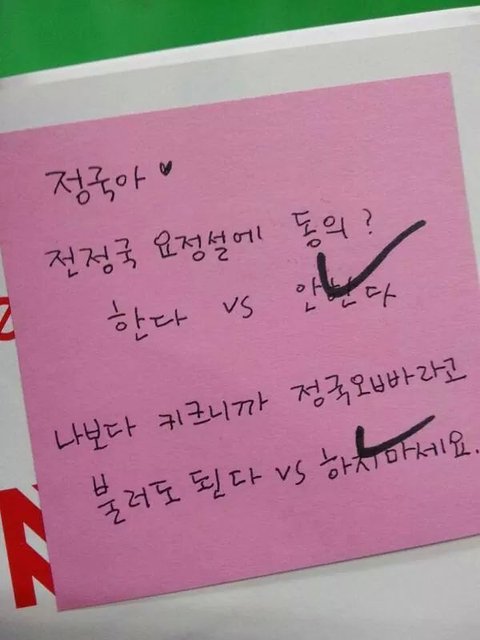 정국아 ♥
전정국 요정설에 동의?
한다 vs 안한다
나보다 키크니까 정국오빠라고
불러도 된다 vs 하지마세요.